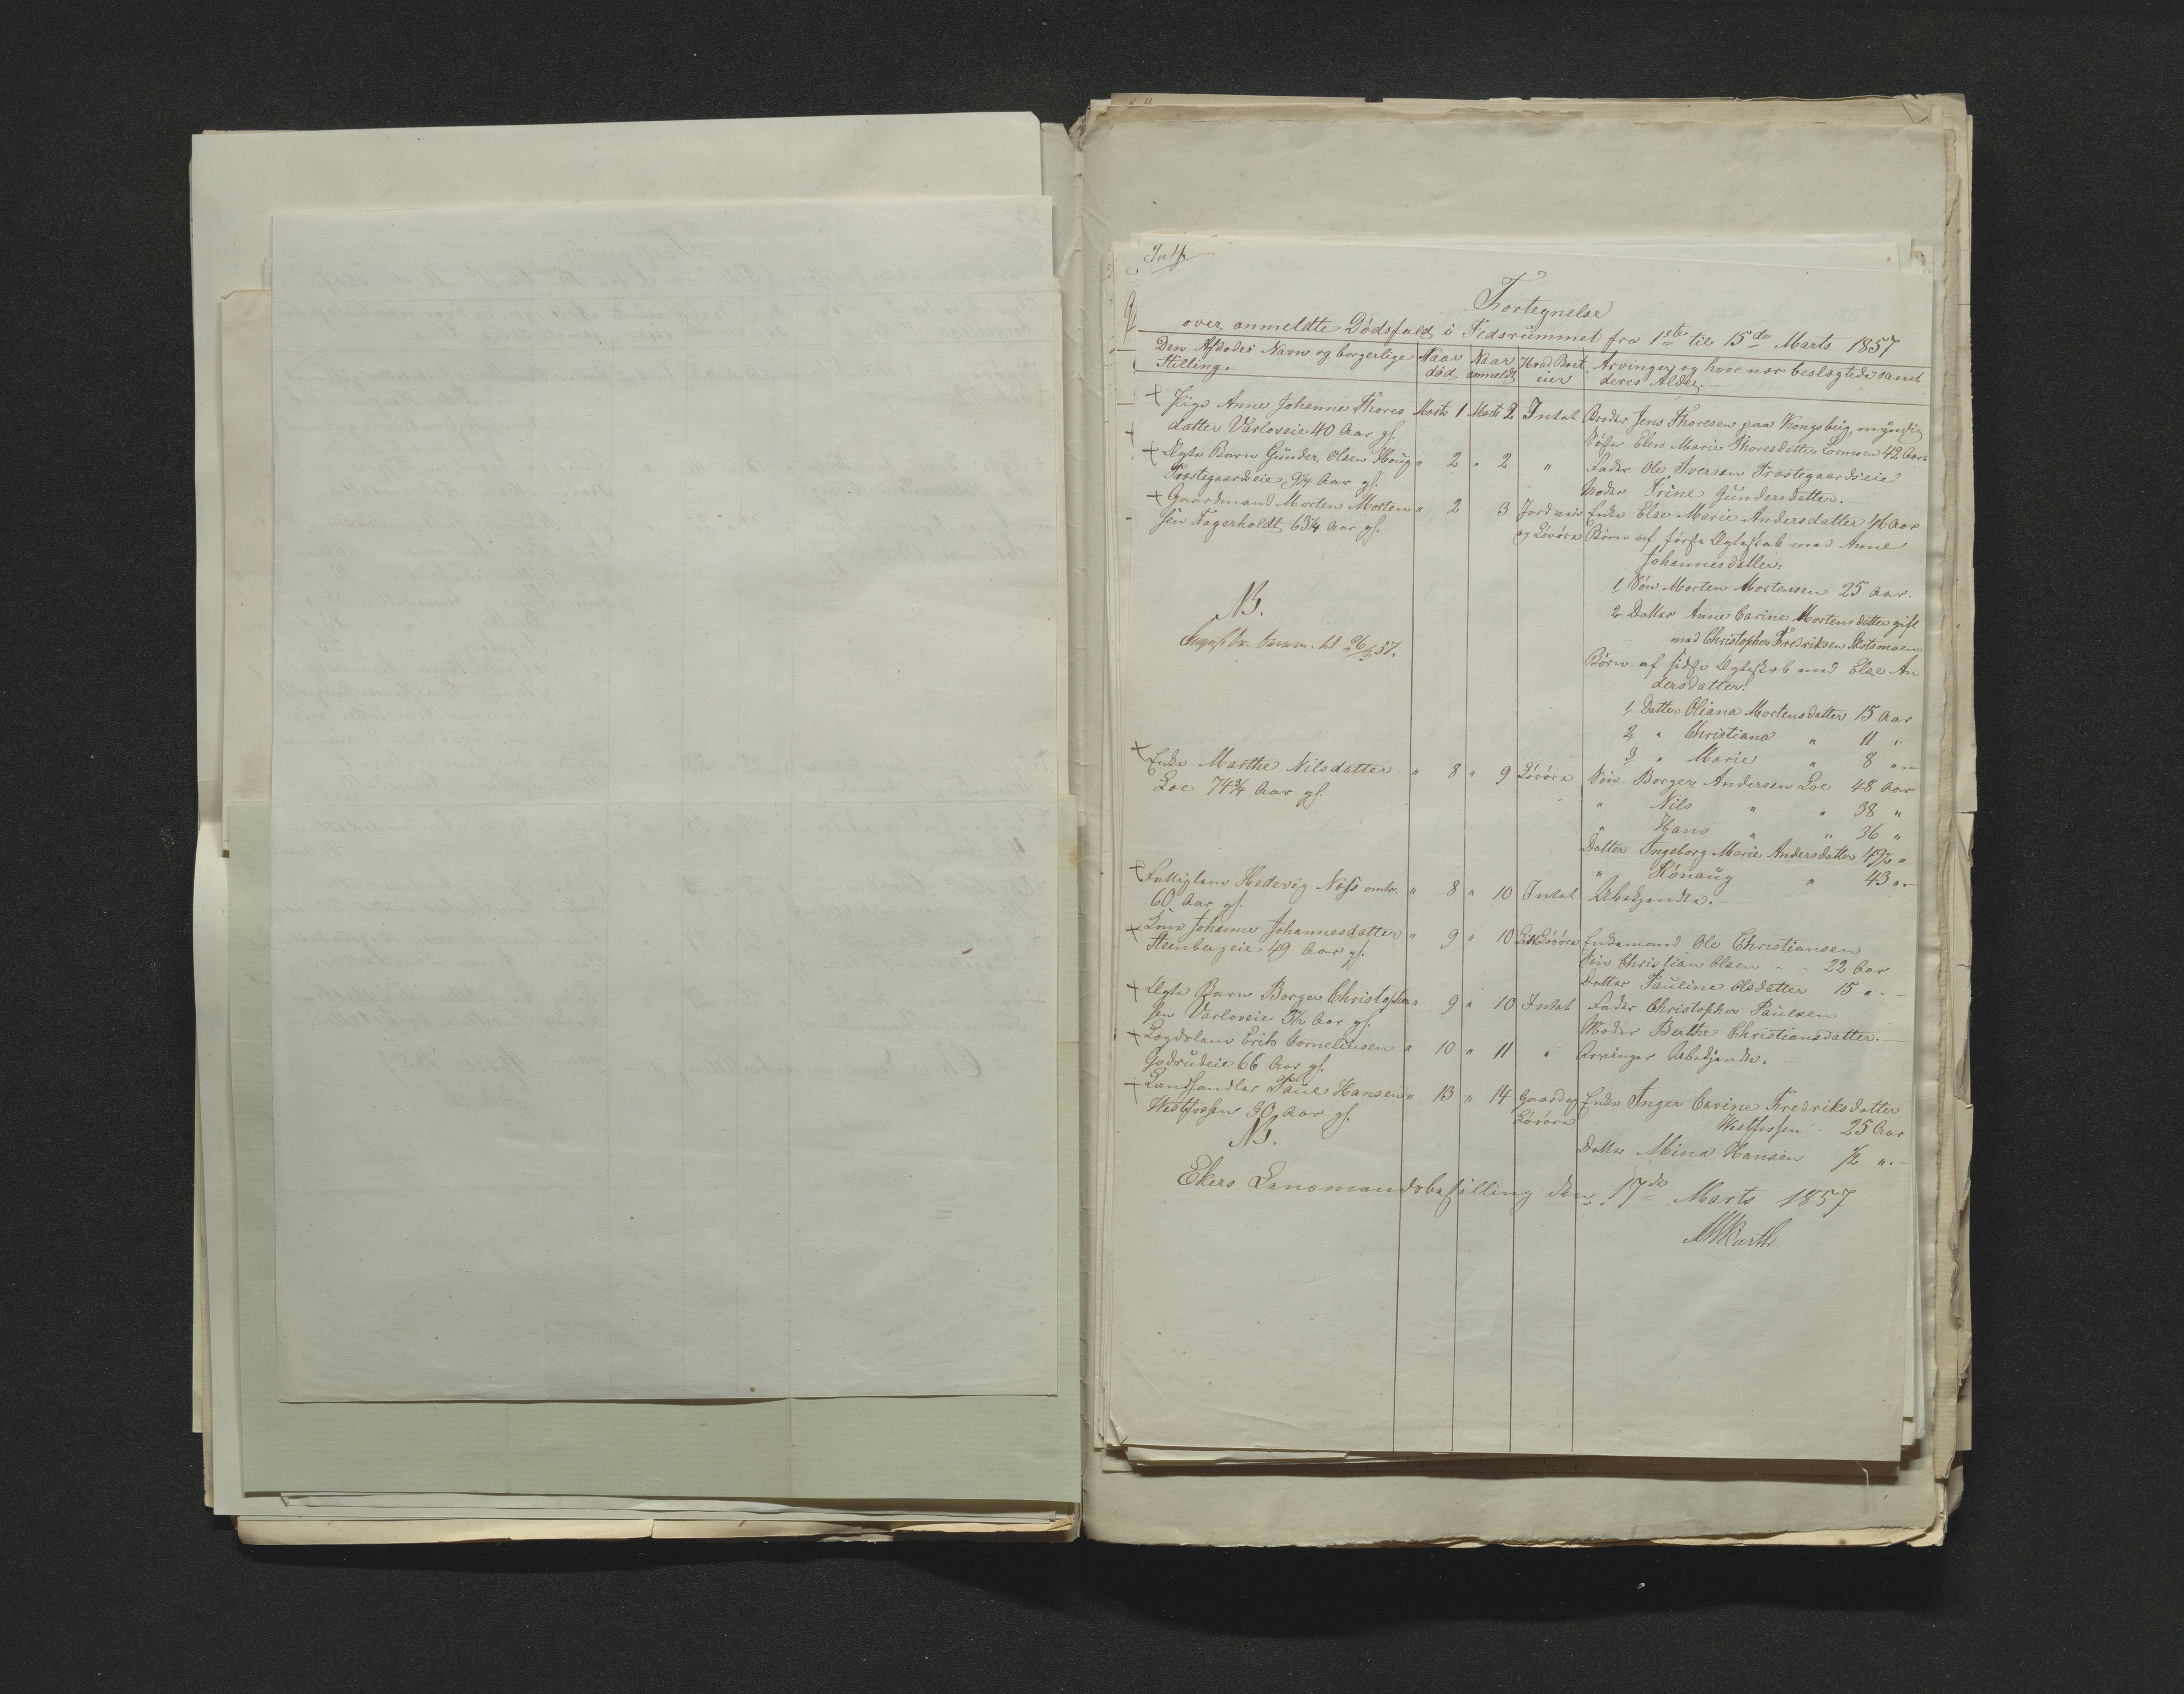 Fortegnelse
over anmeldte Dödsfald i Tidsrummet fra 1ste til 15de Marts 1857
Den Afdödes Navn og borgerlige Stilling. Naar död Naar anmeldt Hvad Boet eier Arvinger og hvor nær beslægtede samt deres Alder.
+ Pige Anne Johanne Thores Marts 1 Marts 2 Intet Broder Jens Thoresen paa Kongsberg, myndig
datter Varloveie 40 Aar gl. Söster Elen Marie Thoresdatter 42 Aar
+ Ægte Barn Gunder Olsen Houg " 2 " 2 " Fader Ole Iversen Præstegaardseie
Præstegaardseie 9 1/4 Aar gl. Moder Trine Gundersdatter.
+ Gaardmand Morten Morten " 2 3 Jordveie Enke Else Marie Andersdatter 46 Aar
sen Fagerholdt 63 1/4 Aar gl. og Lösöre Börn af förste Ægteskab med Anne
Johannesdatter:
1 Sön Morten Mortensen 25 Aar.
NB. 2 Datter Anne Carine Mortensdatter gift
med Christopher Fredriksen Skotsmoen
26/3 57. Börn af sidste Ægteskab med Else An
dersdatter:
1 Datter Oliana Mortensdatter 15 Aar
2 " Christiana " 11 "
3 " Marie " 8 "
+ Enke Marthe Nilsdatter " 8 " 9 Lösöre Sön Borger Andersen Loe 48 Aar
Loe 74 3/4 Aar gl. " Nils " " 38 "
Hans " " 36 "
Datter Ingeborg Marie Andersdatter 49 1/2 "
" Rönaug " 43 "
+ Fattiglem Hedevig Næss omtr. " 8 " 10 Intet Ubekjendte.
60 Aar gl.
+ Kone Johanne Johannesdatter " 9 " 10 Lidt Lösöre Enkemand Ole Christiansen
Steenbergeie 49 Aar gl. Sön Christian Olsen - - 22 Aar
Datter Pauline Olsdatter 15 "
+ Ægte Barn Borger Christopher " 9 " 10 Intet Fader Christopher Paulsen
sen Varloveie 5 1/2 Aar gl. Moder Berthe Christiansdatter.
+ Lægdslem Erik Corneliusen " 10 " 11 " Arvinger Ubekjendte.
Godrudeie 66 Aar gl.
+ Landhandler Paul Hansen " 13 " 14 Gaard og Enke Inger Carine Fredriksdatter
Westfossen 30 Aar gl. Lösöre Westfossen - 25 Aar
NB. Datter Mina Hansen 1/2 "
Ekers Lensmandsbestilling den 17de Marts 1857